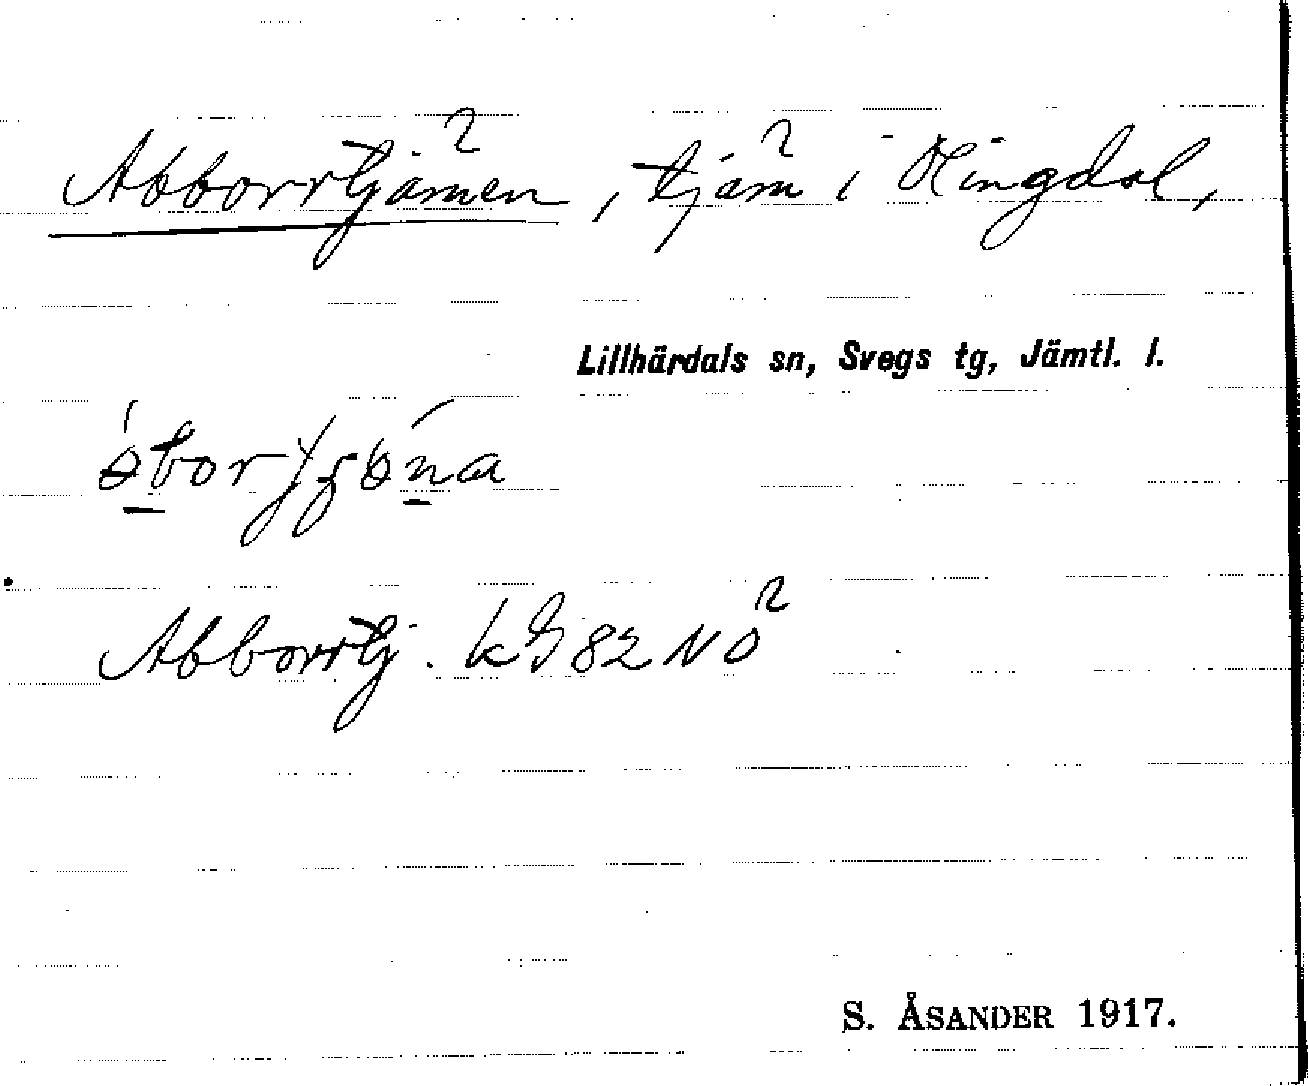 Abborrtjärnen, tjärn i Olingdal,
Lillhärdals sn, Svegs tg, Jämtl. l.
Abborrtj. kG 82 NO
S. ÅSANDER 1917.